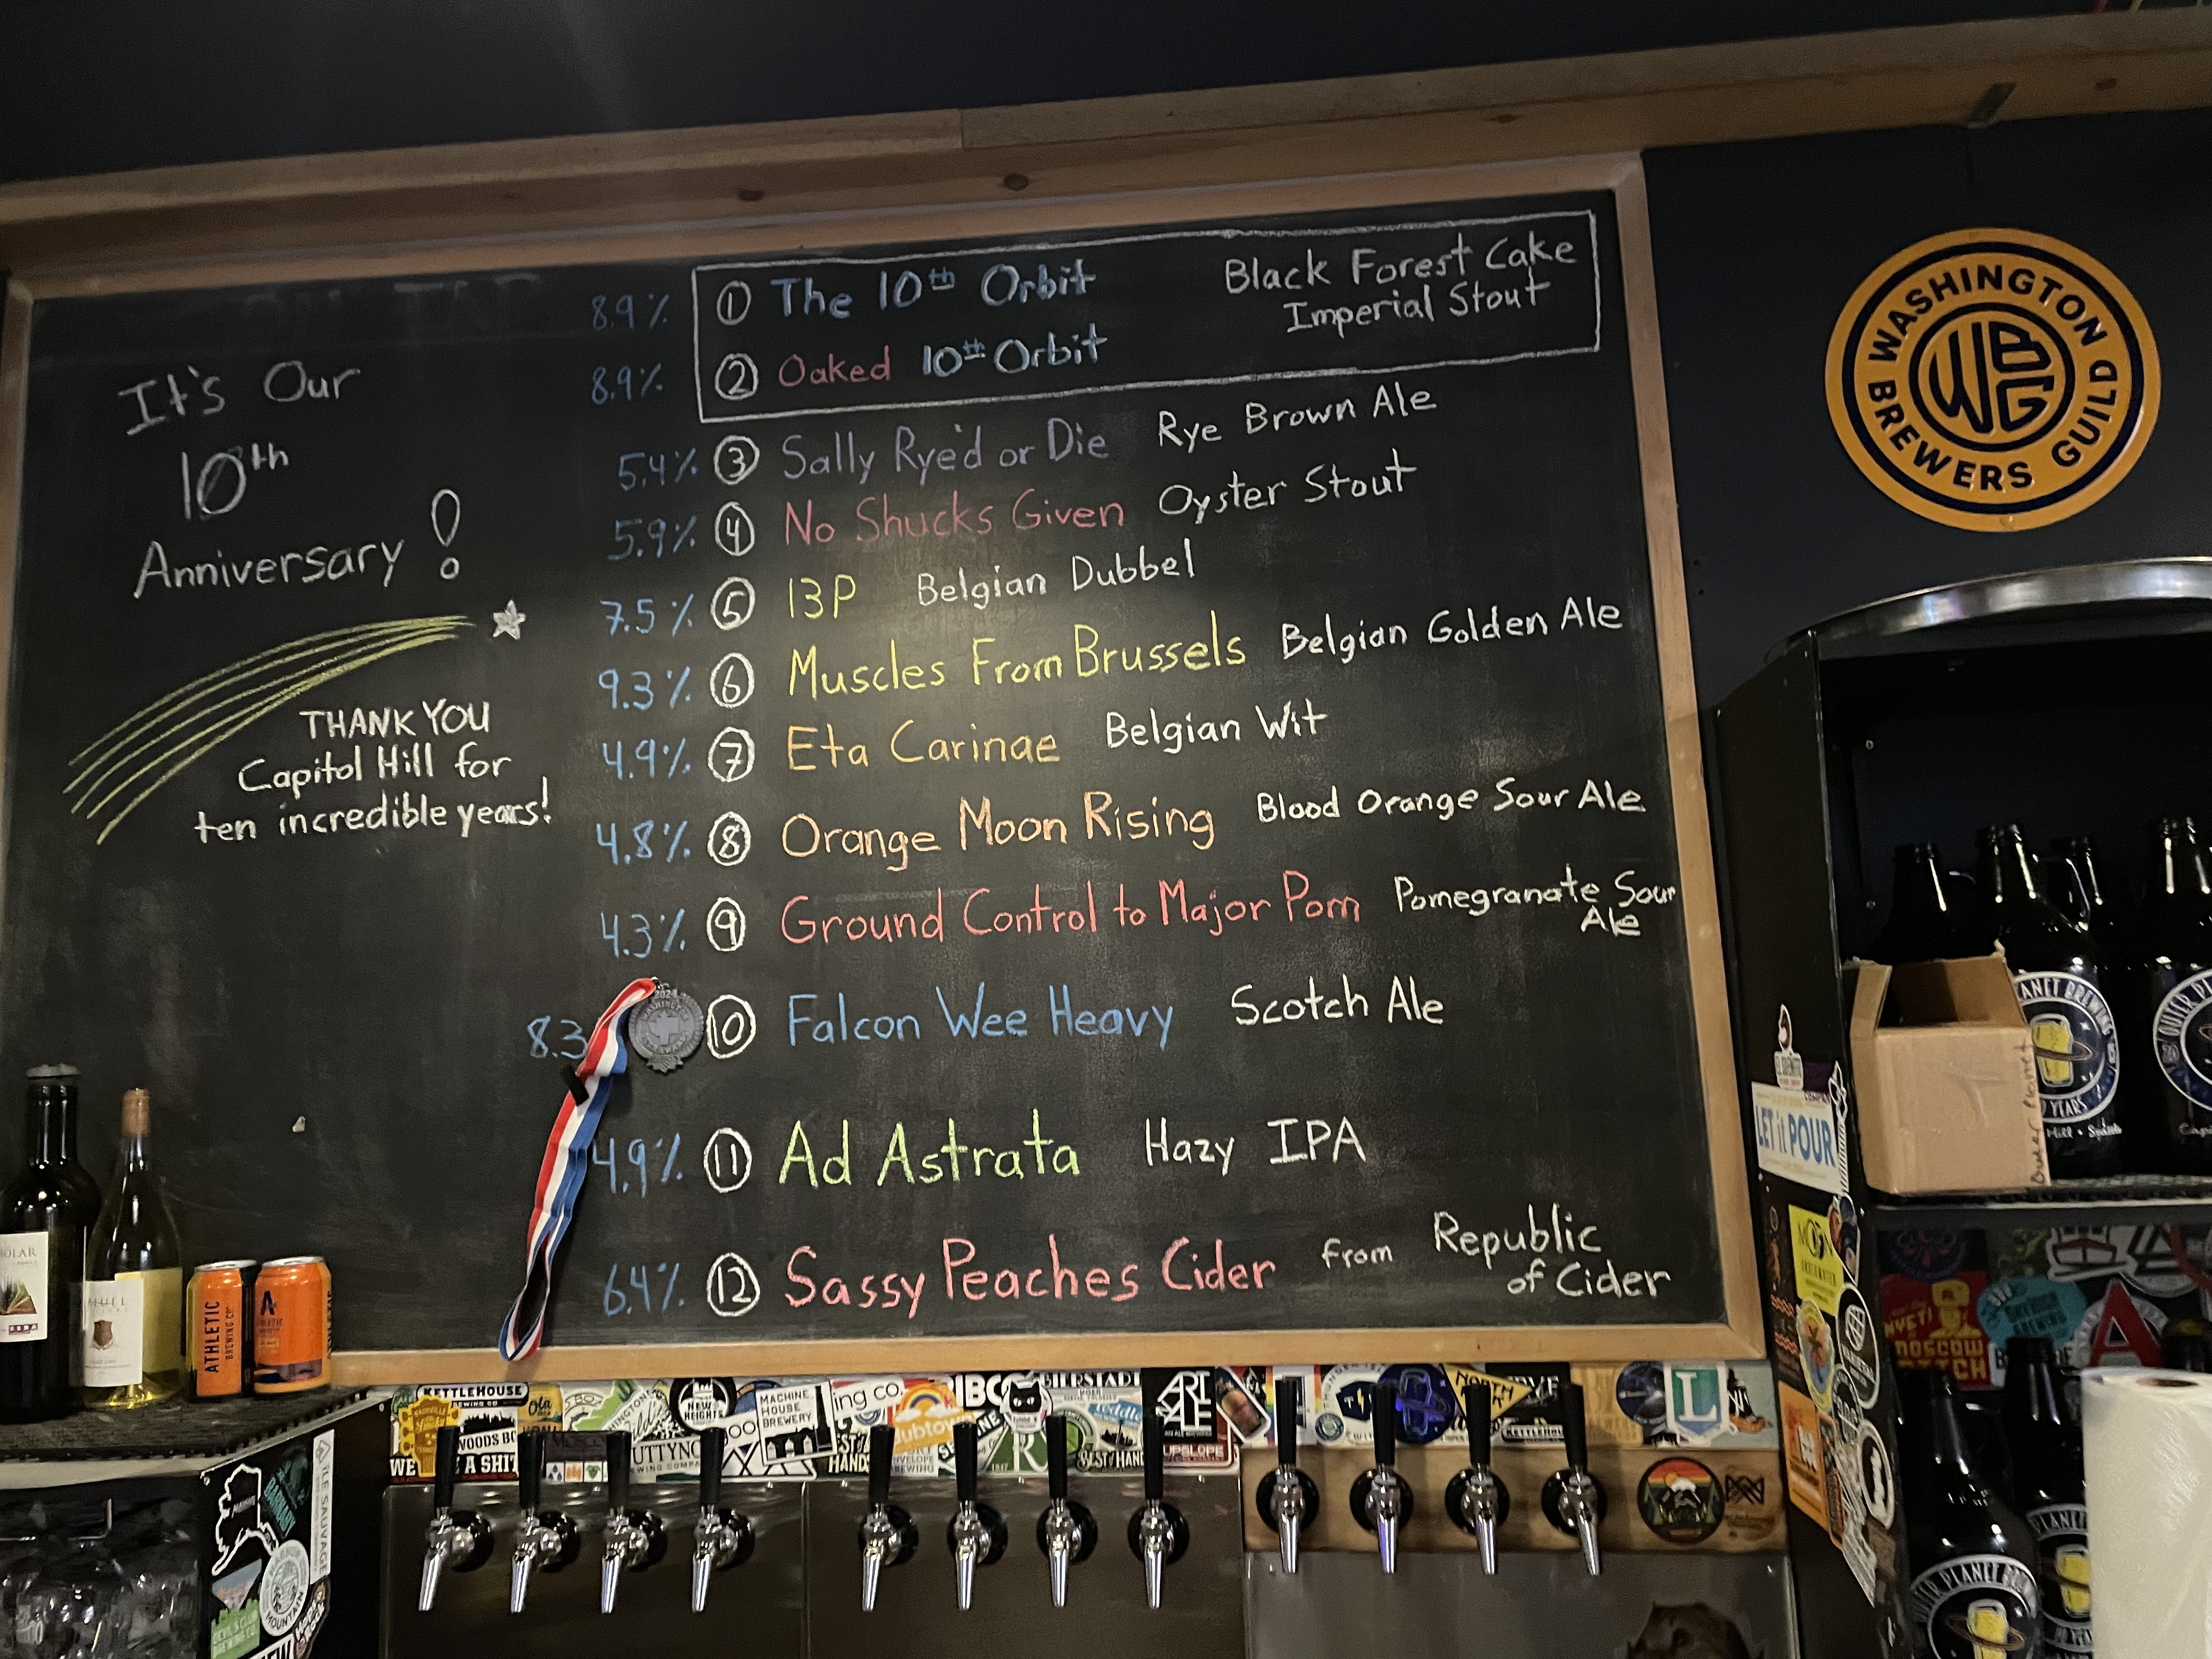 It's Our
10th
Anniversary!
THANK YOU
Capitol Hill for
ten incredible years!
8.9% 1 The 10th Orbit Black Forest Cake
Imperial Stout
8.9% 2 Oaked 10th Orbit
5.4% 3 Sally Rye'd or Die Rye Brown Ale
5.9% 4 No Shucks Given Oyster Stout
7.5% 5 13P Belgian Dubbel
9.3% 6 Muscles From Brussels Belgian Golden Ale
4.9% 7 Eta Carinae Belgian Wit
4.8% 8 Orange Moon Rising Blood Orange Sour Ale
4.3% 9 Ground Control to Major Pom Pomegranate Sour
Ale
8.3 10 Falcon Wee Heavy Scotch Ale
4.9% 11 Ad Astrata Hazy IPA
6.4% 12 Sassy Peaches Cider from Republic
of Cider
WASHINGTON
BREWERS GUILD
WBG
2024
LET it POUR
ATHLETIC
BREWING CO
KETTLEHOUSE
NASHVILLE
NEW
HEIGHTS
MACHINE
HOUSE
BREWERY
ing co.
NORTH
UPSLOPE
L
A
MOSCOW
ILE SAUVAGE
MOUNTAIN
Outer Planet
OUTER PLANET